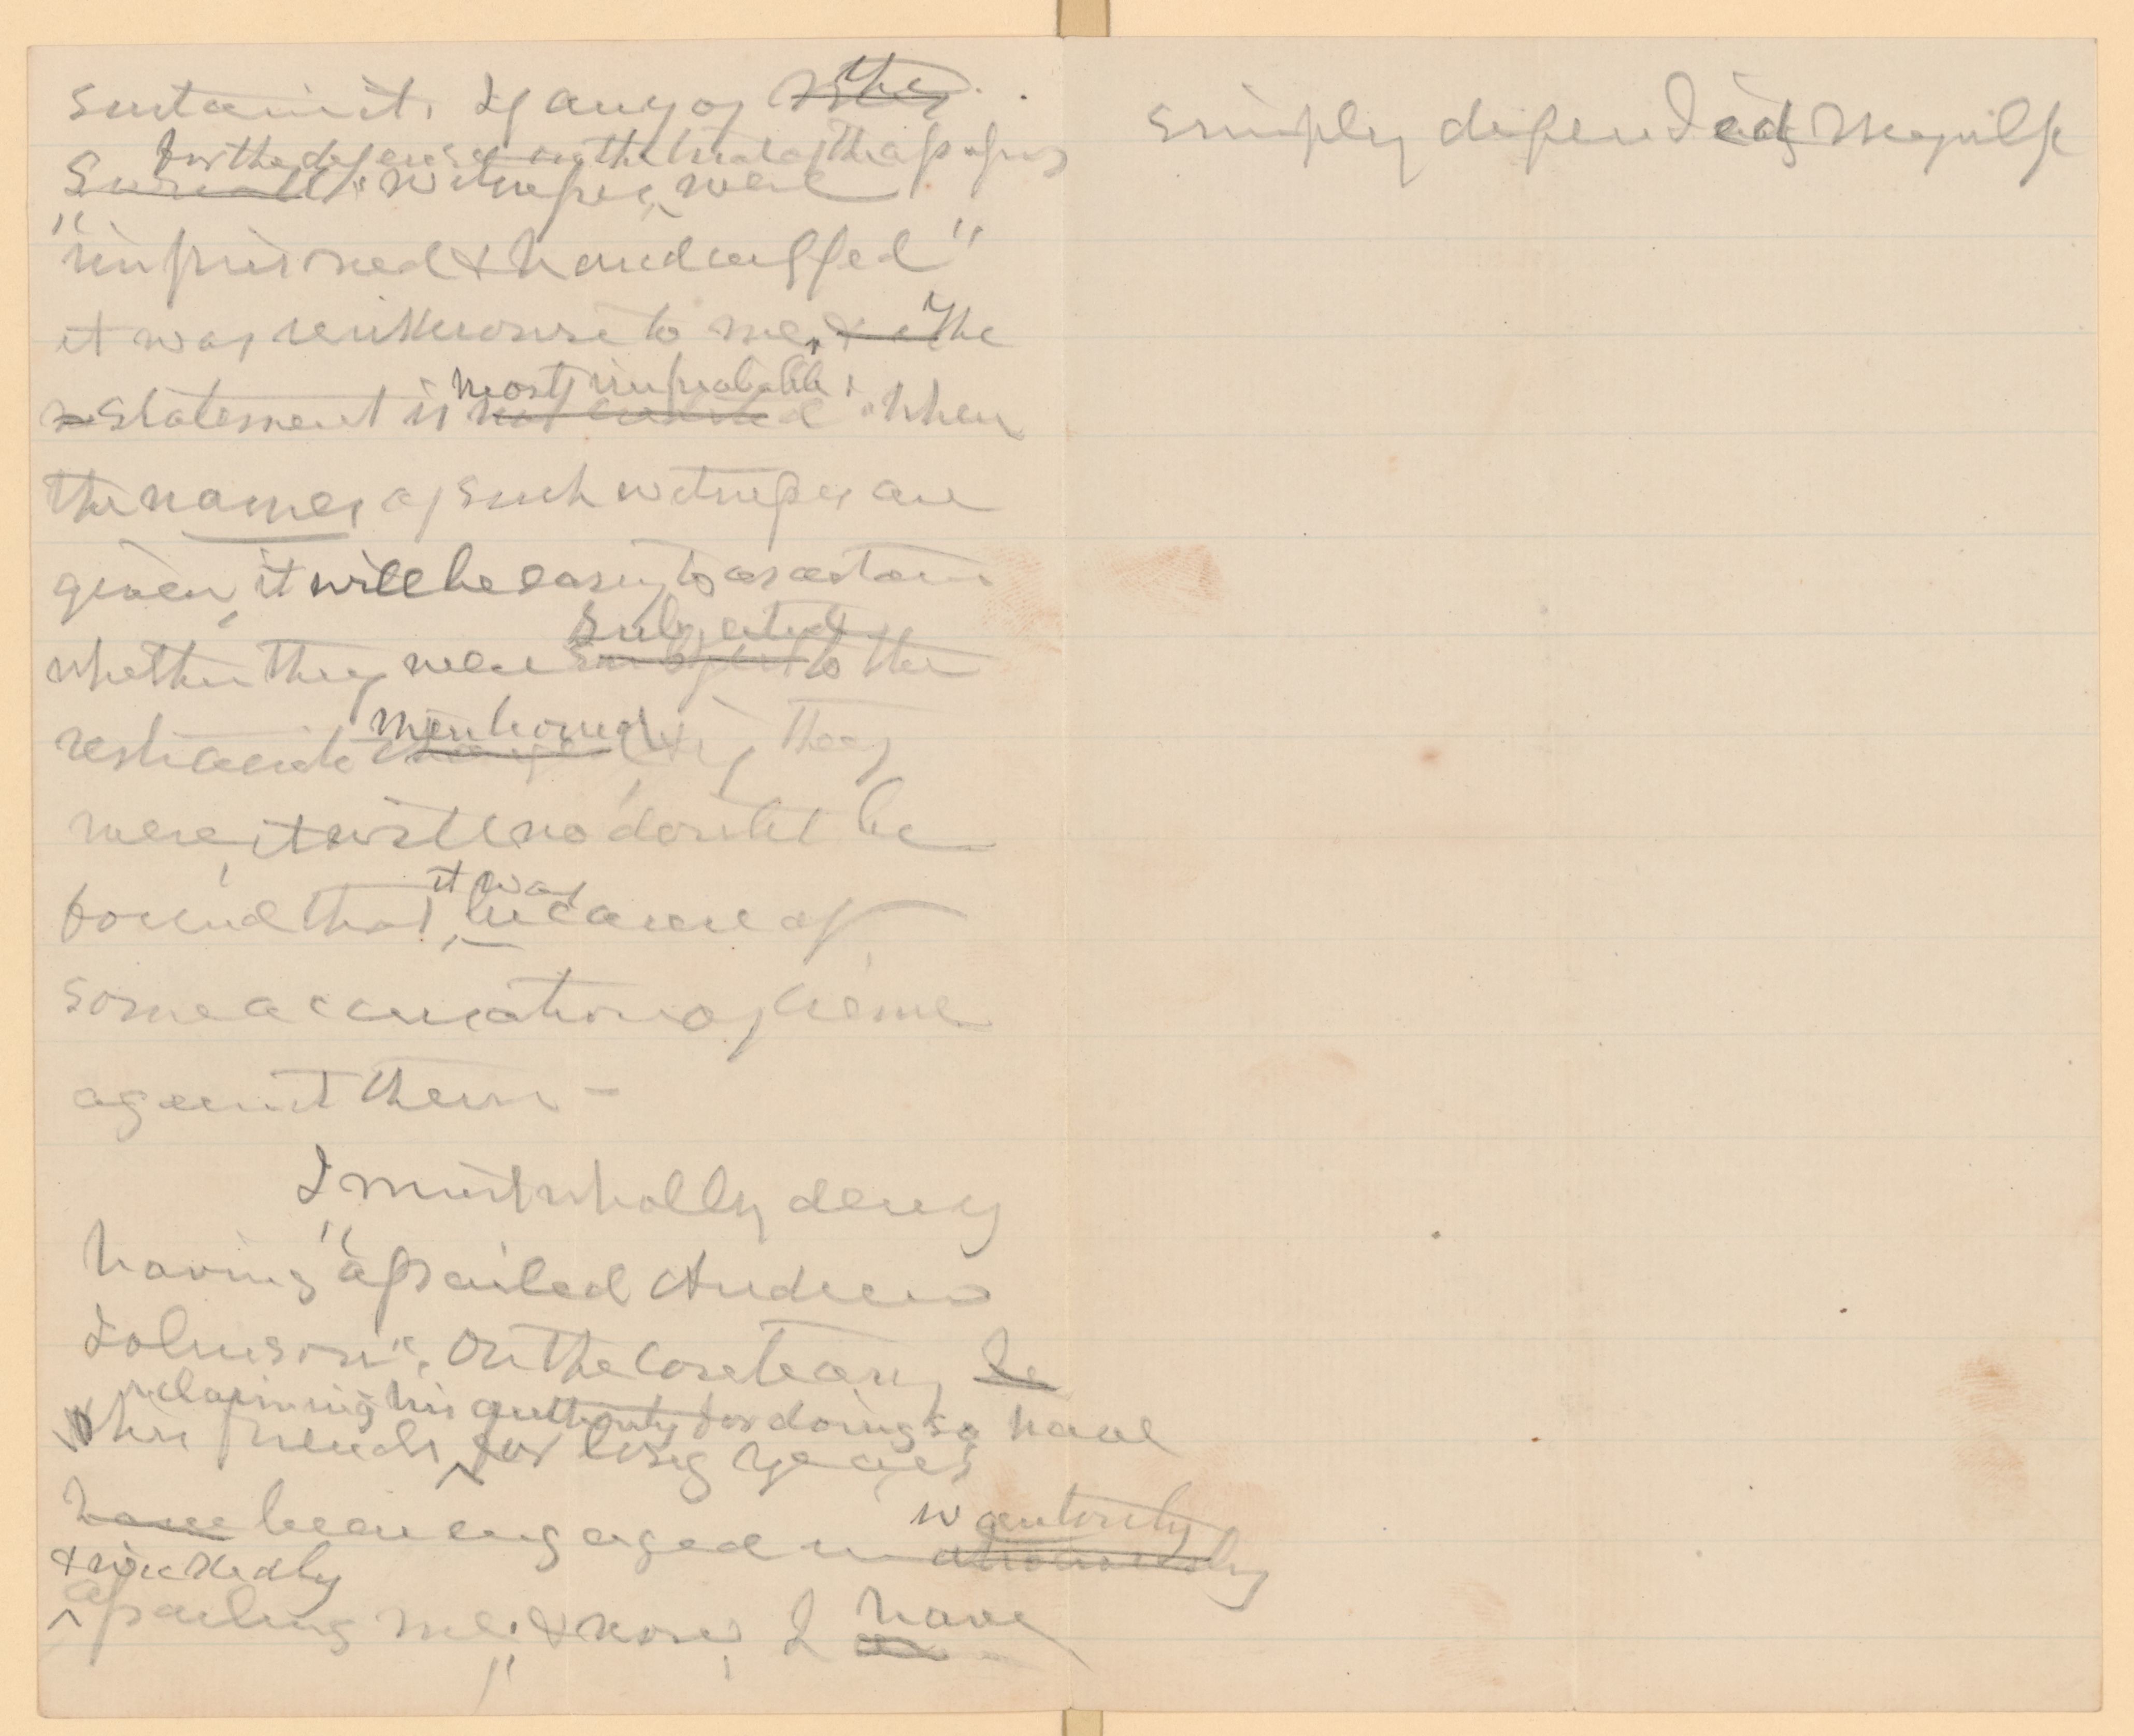 sustain it. If any of the
for the defense on the trial of the assassins
Surratt's witnesses, were
"imprisoned & handcuffed"
it was unknown to me, & The
most improbable.
statement is not When
the names of such witnesses are
given, it will be easy to ascertain
subjected
whether they were subject to the
mentioned
restraints charged, & if they
were, it will no doubt be
it was
found that because of
some accusation of crime
against them -
I must wholly deny
having "assailed Andrew
Johnson". On the contrary he
claiming his authority for doing so have
& his friends for long years
wantonly
have been engaged in atrociously
& wickedly
assailing me; & now, I have
simply defended myself